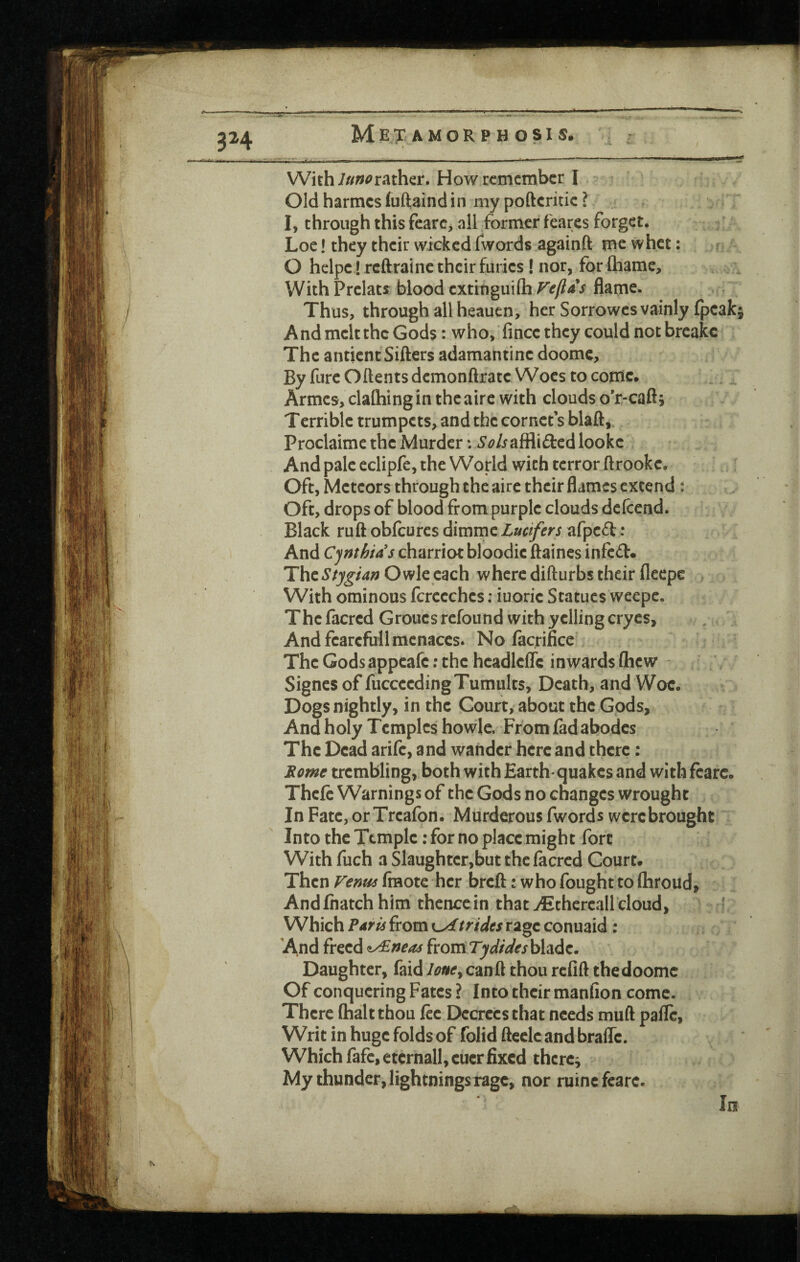 324 METAMORPHOSIS.
With Iuno rather. How remember I
Old harmes ſuſtaind in my poſteritie?
I, through this feare, all former feares forget.
Loe! they their wicked ſwords againſt me whet:
O helpe! reſtraine their furies! nor, for ſhame,
With Prelats blood extinguiſh Veſta's flame.
Thus, through all heauen, her Sorrowes vainly ſpeak;
And melt the Gods: who, ſince they could not breake
The antient Siſters adamantine doome,
By ſure Oſtents demonſtrate Woes to come.
Armes, claſhing in the aire with clouds o'r-caſt;
Terrible trumpets, and the cornet's blaſt,
Proclaime the Murder: Sols afflicted looke
And pale eclipſe, the World with terror ſtrooke.
Oft, Meteors through the aire their flames extend:
Oft, drops of blood from purple clouds deſcend.
Black ruſt obſcures dimme Lucifers aſpect:
And Cynthia's charriot bloodie ſtaines infect.
The Stygian Owle each where diſturbs their ſleepe
With ominous ſcreeches: iuorie Statues weepe.
The ſacred Groues reſound with yelling cryes,
And fearefull menaces. No ſacrifice
The Gods appeaſe: the headleſſe inwards ſhew
Signes of ſucceeding Tumults, Death, and Woe.
Dogs nightly, in the Court, about the Gods,
And holy Temples howle. From ſad abodes
The Dead ariſe, and wander here and there:
Rome trembling, both with Earth-quakes and with feare.
Theſe Warnings of the Gods no changes wrought
In Fate, or Treaſon. Murderous ſwords were brought
Into the Temple: for no place might ſort
With ſuch a Slaughter, but the ſacred Court.
Then Venus ſmote her breſt: who ſought to ſhroud,
And ſnatch him thence in that Æthereall cloud,
Which Paris from Atrides rage conuaid:
And freed Æneas from Tydides blade.
Daughter, ſaid Ioue, canſt thou reſiſt the doome
Of conquering Fates? Into their manſion come.
There ſhalt thou ſee Decrees that needs muſt paſſe,
Writ in huge folds of ſolid ſteele and braſſe.
Which ſafe, eternall, euer fixed there;
My thunder, lightnings rage, nor ruine feare.
In